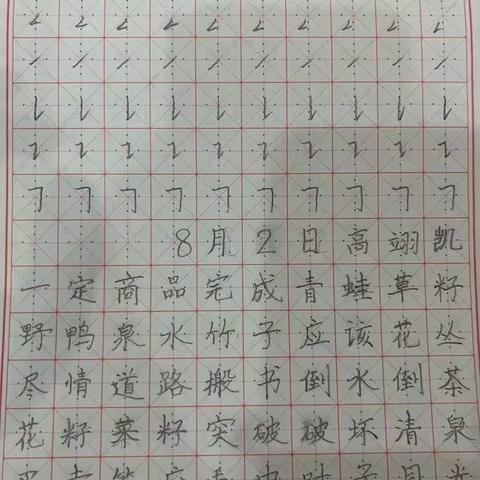 8月2日高翊凯
一定商品完成青蛙草籽
野鸭泉水竹子应该花丛
尽情道路搬书倒水倒茶
花籽菜籽突破破坏清泉